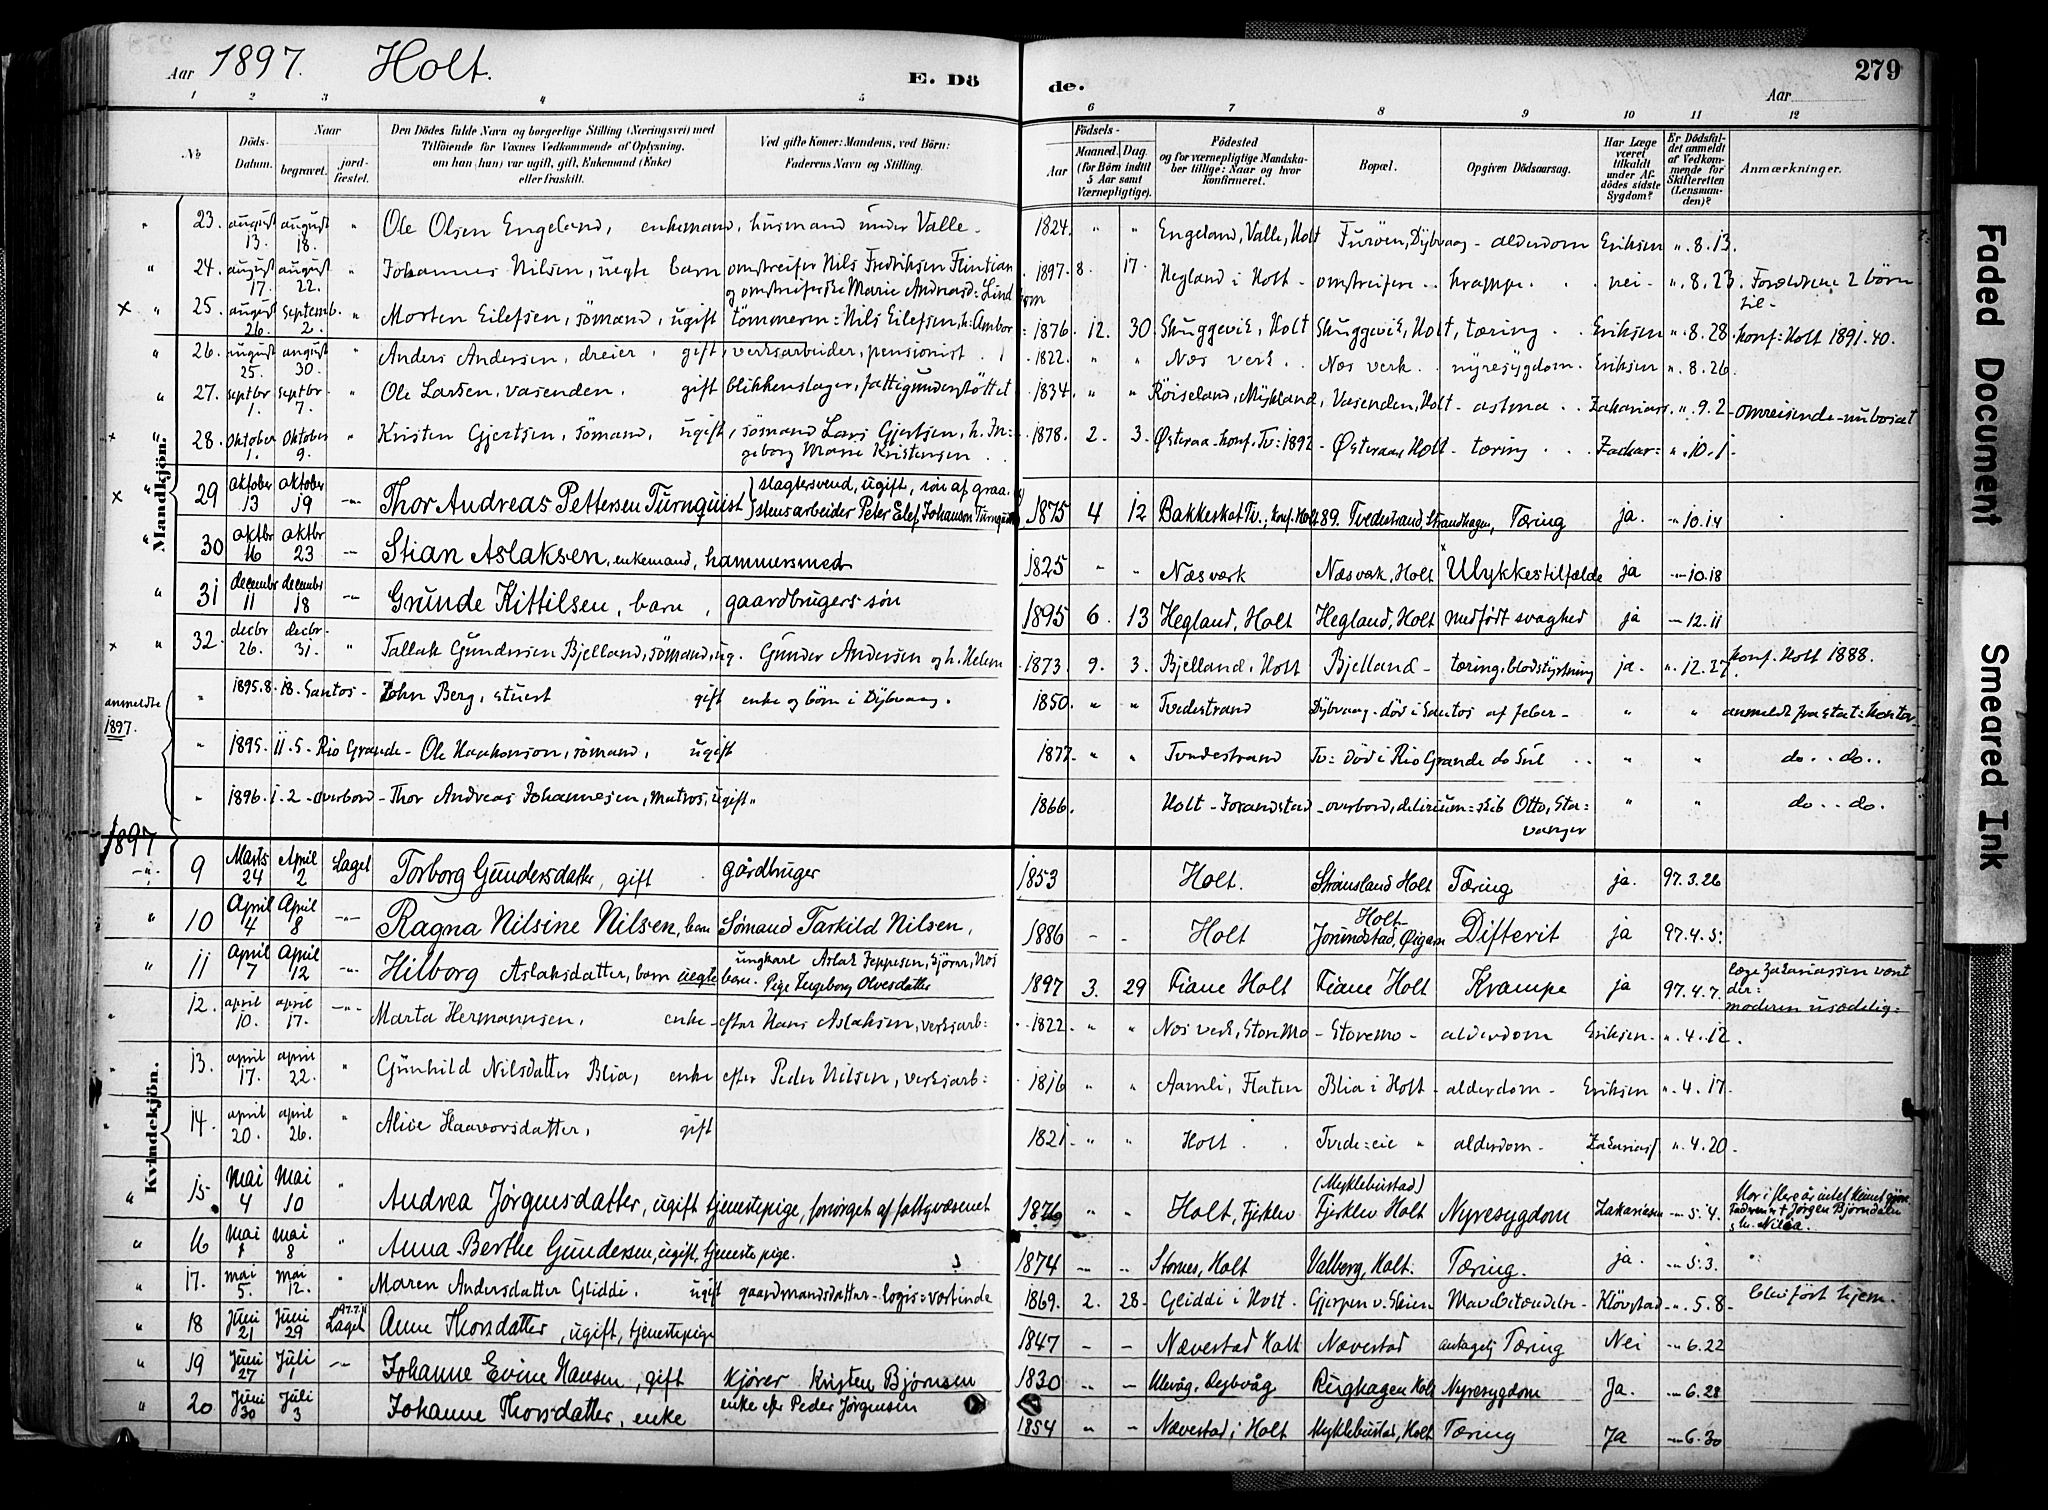 Aar 1897. Holt. E. Dö de. Aar 279
1 2 3 4 5 6 7 8 9 10 11 12
No
Döds-Datum.
Naar begravet. jord-fæstet.
Den Dödes fulde Navn og borgerlige Stilling (Næringsvei) med Tilföiende for Voxnes Vedkommende af Oplysning, om han (hun) var ugift, gift, Enkemand (Enke) eller fraskilt.
Ved gifte Koner: Mandens, ved Börn: Faderens Navn og Stilling.
Födsels-
Aar
Maaned. Dag.
(for Börn indtil 5 Aar samt Værnepligtige).
Födested og for værnepligtige Mandskaber tillige: Naar og hvor konfirmeret.
Bopæl.
Opgiven Dödsaarsag.
Har Læge været tilkaldt under Afdödes sidste Sygdom?
Er Dödsfaldet anmeldt af Vedkommende for Skifteretten (Lensmanden)?
Anmærkninger.
Mandkjön.
" 23. august 13. august 18. " Ole Olsen Engeland, enkemand, husmand under Valle. 1824. " " Engeland, Valle, Holt Furöen, Dybvaag - alderdom Eriksen ". 8. 13.
" 24. august 17. august 22. " Johannes Nilsen, uegte barn omstreifer Nils Fredriksen Flintian og omstreiferske Marie Andreasd: Lind 1897. 8. 17. Hegland i Holt - omstreifere.. krampe. nei. ". 8. 23. Forældrene 2 börn til.
× " 25. august 26. septemb. 2. " Morten Eilefsen, sömand, ugift tömmerm: Nils Eilefsen, h: Ambor 1876. 12. 30. Skuggevik, Holt Skuggevik, Holt, tæring.. Eriksen ". 8. 28. konf: Holt 1891. 40.
" 26. august 25. august 30. " Anders Andersen, dreier, gift, verksarbeider, pensionist. 1822. " " Næs verk. Næs verk. nyresygdom. Eriksen ". 8. 26.
" 27. septbr 1. septbr. 7. " Ole Larsen, vasenden. gift blikkenslager, fattigunderstöttet 1834. " " Röiseland, Mykland, Vasenden, Holt - astma.. Zakarias ". 9. 2. omreisende - nu bosat
× " 28. Oktober 1. Oktober 9. " Kristen Gjertsen, sömand, ugift, sömand Lars Gjertsen, h. Ingeborg Marie Kristensen.. 1878. 2. 3. Østeraa - konf. Tv: 1892 - Østeraa Holt - tæring... Zakar= ". 10. 1.
× " 29 oktober 13 oktober 19 -"- Thor Andreas Pettersen Turnquist slagtersvend, ugift, søn af graastensarbeider Peter Elef Johanson Turnquist 1875 4 12 Bakkeskat Tv., konf. Holt 89. Tvedestrand, Strandhagen, Tæring ja. -"- 10. 14
" 30 oktbr 16 oktbr 23 -"- Stian Aslaksen, enkemand, hammersmed 1825 " " Næsverk Næsverk, Holt Ulykkestilfælde ja -"- 10. 18
" 31 decembr 11 decembr 18 -"- Grunde Kittilsen, barn, gaardbrugers søn 1895 6. 13 Hegland, Holt Hegland, Holt Medfödt svaghed ja -"- 12. 11
× " 32. decbr 26. decbr. 31. " Tallak Gundersen Bjelland, sömand, ug. Gunder Andersen og h. Helene 1873. 9. 3. Bjelland i Holt Bjelland - tæring, blodstyrtning ja. ". 12. 27. konf. Holt 1888.
anmeldte 1897.
" 1895. 8. 18. Santos - John Berg, stuert gift enke og börn i Dybvaag. 1850. " " Tvedestrand Dybvaag - död i Santos af feber - " " anmeldt fra stat: kontor.
" 1895. 11. 5. Rio Grande - Ole Haakonson, sömand, ugift 1877. " " Tvedestrand Tv: död i Rio Grande do Sul.. " " do... do..
" 1896. 1. 2. overbord - Thor Andreas Johannesen, matros, ugift " 1866. Holt - Jorandstad - overbord, delirium: skib Otto, Stavanger " " do... do.
1897
Kvindekjön.
-"- 9 Marts 24 April 2 Laget Torborg Gundersdatter, gift gårdbruger 1853 Holt. Strømsland Holt Tæring ja. 97. 3. 26
" 10 April 4 April 8 -"- Ragna Nilsine Nilsen, barn Sømand Tarkild Nilsen, 1886 - - Holt Holt - Jorundstad, Difterit ja 97. 4. 5.
" 11 April 7 April 12 -"- Hilborg Aslaksdatter, barn uegte ungkarl Aslak Jeppesen, Nes barn. Pige Ingeborg Olvesdatter 1897 3. 29 Fiane Holt Fiane Holt Krampe ja 97. 4. 7. læge Zakariassen moderen usædelig:
" 12. april 10. april 17. -"- Marta Hermannsen, enke - efter Hans Aslaksen, verksarb: 1822. " " Næs verk, Storemo - Storemo - alderdom Eriksen - ". 4. 12.
" 13. april 17. april 22. " Gunhild Nilsdatter Blia, enke efter Peder Nilsen, verksarb: 1816 " " Aamli, Flaten Blia i Holt - alderdom - Eriksen ". 4. 17.
" 14. april 20. april 26. " Alice Haavorsdatter, gift 1821. " " Holt.. Tvede=eie " alderdom. Zakarias ". 4. 20.
" 15. Mai 4 Mai 10 " Andrea Jørgensdatter, ugift tjenestepige, forsørget af fattigvæsenet 1876 " " Holt, Fjerklev (Myklebustad) Fjerklev Holt Nyresygdom Zakariasen -"- 5. 4. Jørgen Bjørndalen
" 16 Mai 1 Mai 8 " Anna Berthe Gundersen, ugift, tjenestepige. 1874 -"- -"- Stornes, Holt Valberg, Holt. Tæring. ja. -"- 5. 3.
" 17. mai 5. mai 12. " Maren Andersdatter Gliddi. ugift gaardmandsdatter - logis=vertinde 1869. 2. 28. Gliddi i Holt. Gjerpen v. Skien Klövstad. ". 5. 8. blev fört hjem.
" 18 Juni 21 Juni 29 Laget Anne Thorsdatter, ugift, tjenestepige 1847 - - Nævestad Holt Nævestad antagelig Tæring Nei -"- 6. 22
" 19 Juni 27 Juli 1 -"- Johanne Evine Hansen, gift Kjører Kristen Bjørnsen 1830 -"- - Ulevåg, Dybvåg Holt Nyresygdom Ja. -"- 6. 28
" 20 Juni 30 Juli 3 Johanne Thorsdatter, enke enke efter Peder Jörgensen 1854 " - Nævestad i Holt Myklebustad, Holt Tæring Ja -"- 6. 30
Faded Document
Smeared Ink